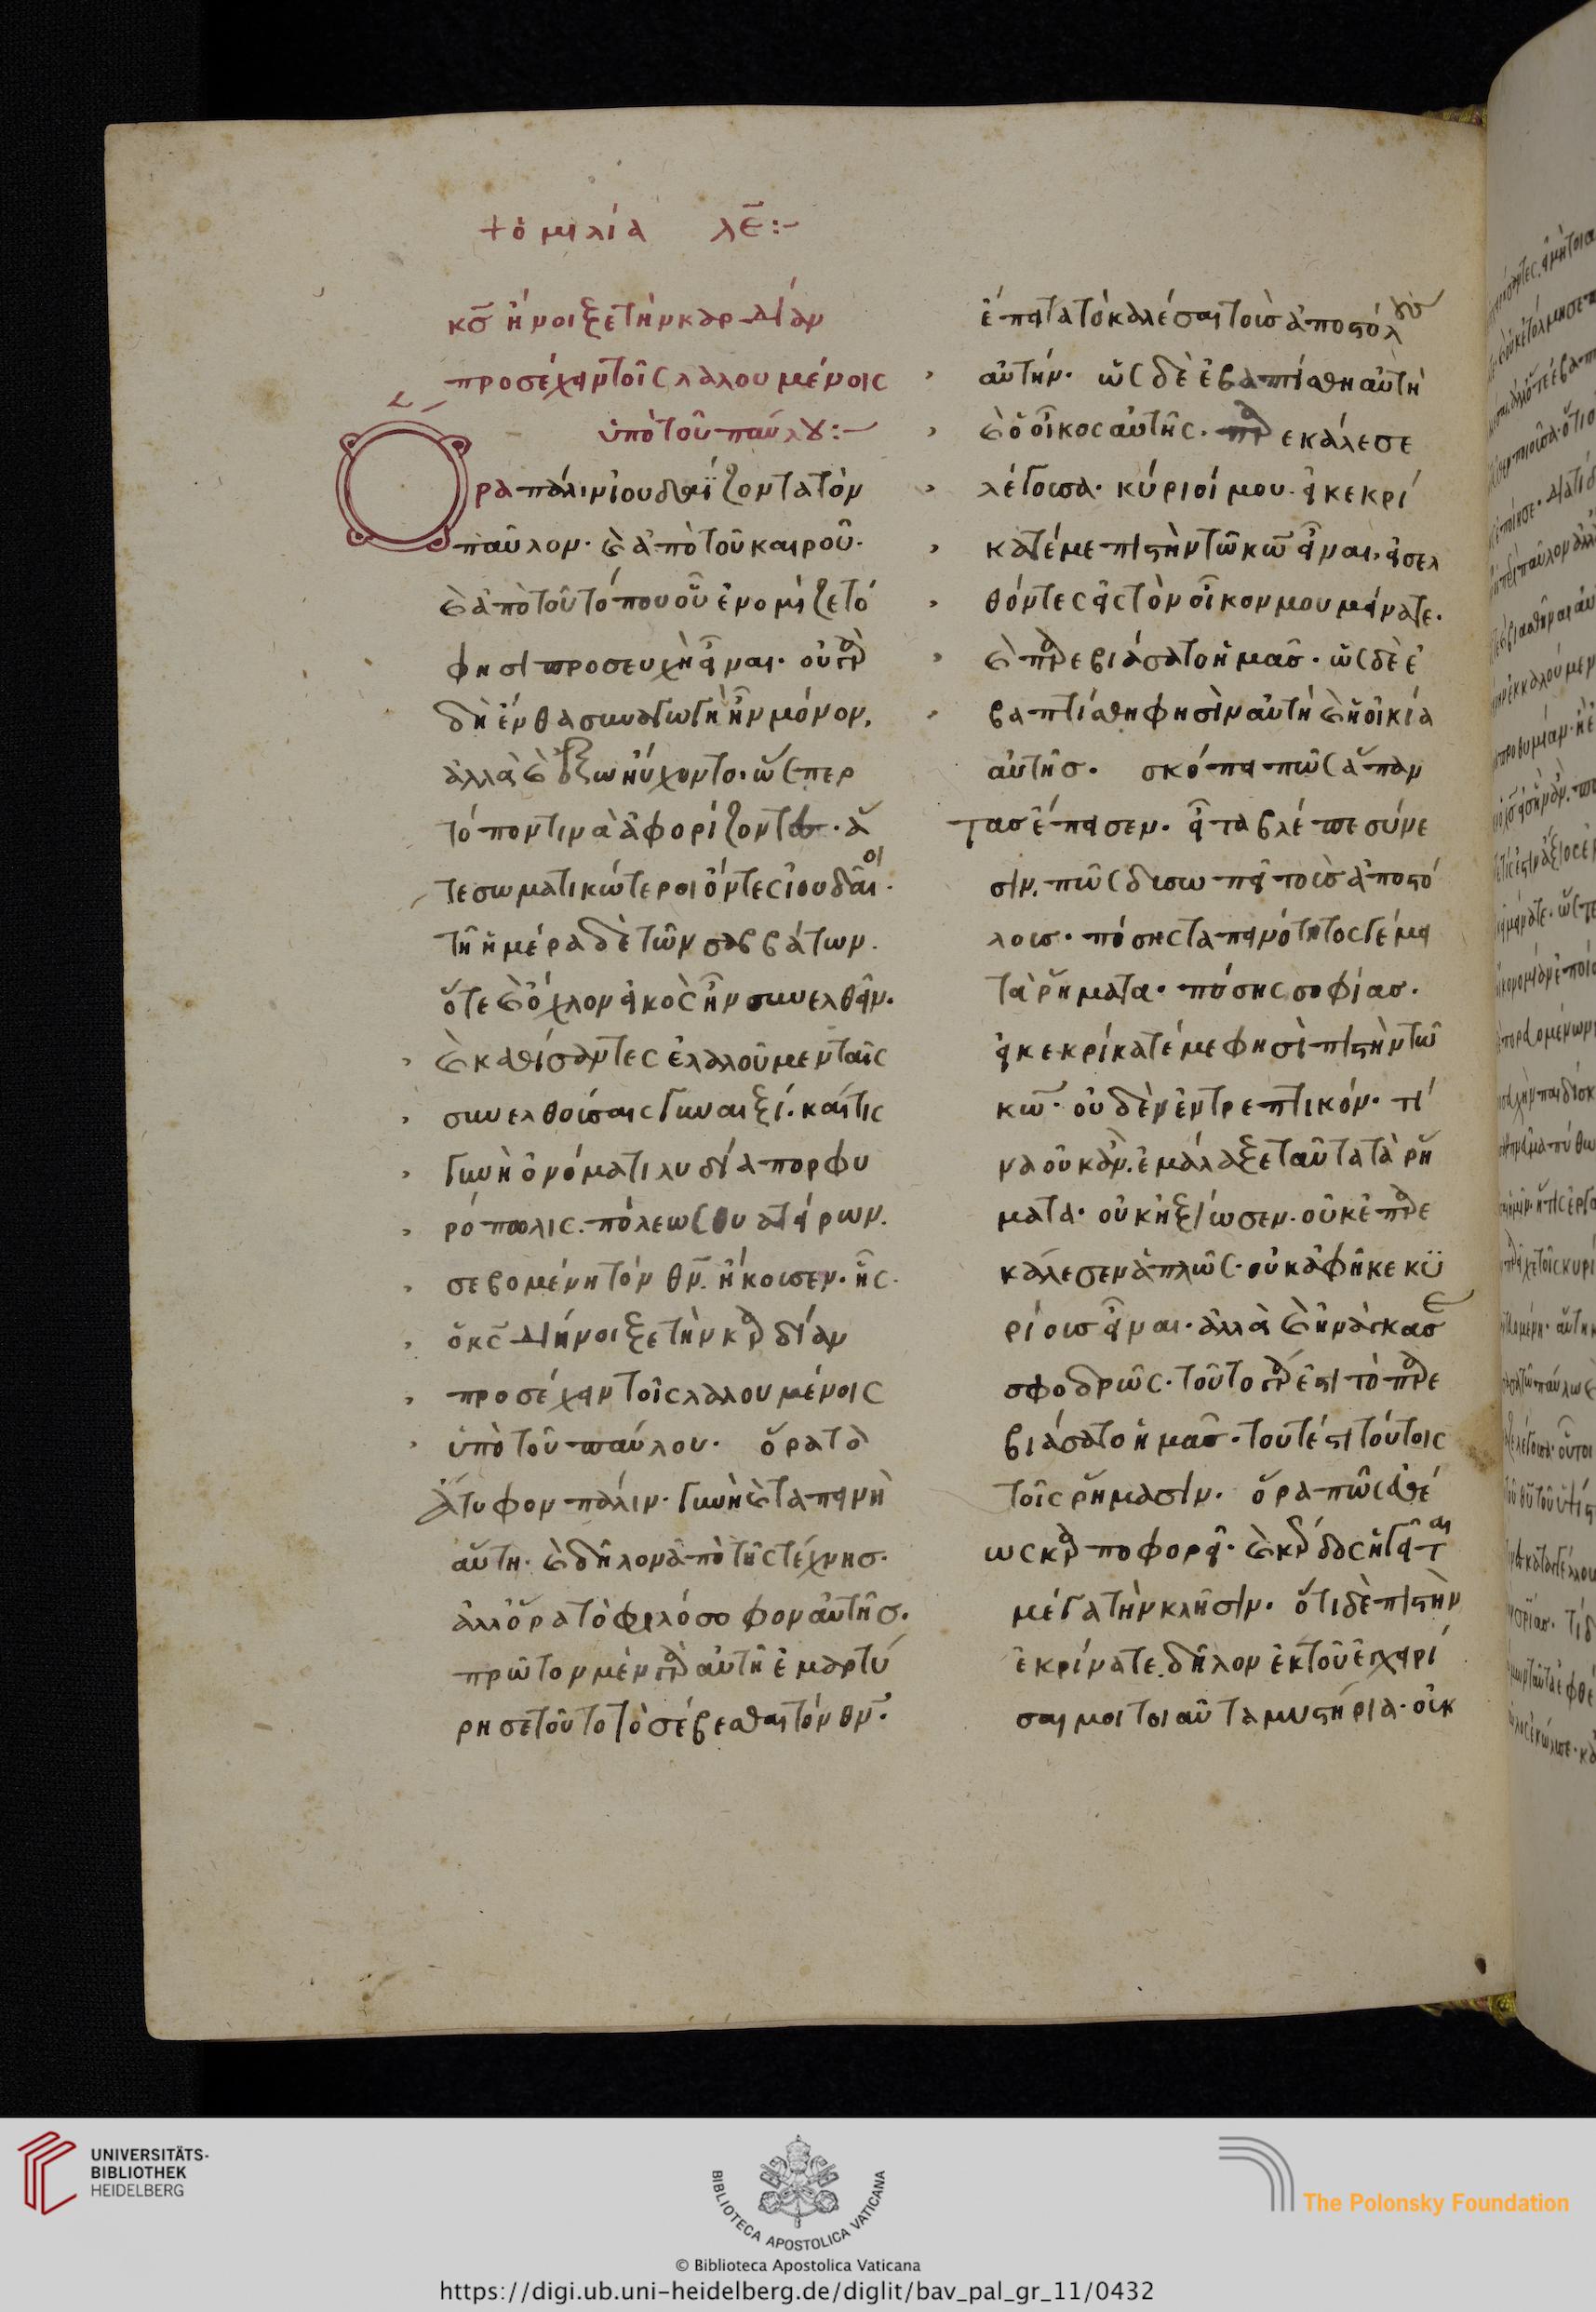 + ὁμιλία λε̄:~
κσ̄ ἤνοιξε τὴν καρδίαν
προσέχειν τοῖς λαλουμένοις
ὑπὸ τοῦ παύλου:~
Ὅρα πάλιν ἰουδαΐζοντα τὸν
παῦλον· καὶ ἀπὸ τοῦ καιροῦ·
καὶ ἀπὸ τοῦ τόπου οὗ ἐνομίζετό
φησι προσευχὴ εἶναι· οὐ γὰρ
δὴ ἔνθα συναγωγὴ ἦν μόνον,
ἀλλὰ καὶ ἔξω ηὔχοντο· ὥσπερ
τόπον τινὰ ἀφορίζοντες· ἅ
τε σωματικώτεροι ὄντες ἰουδαῖοι·
τῆ ἡμέρα δὲ τῶν σαββάτων·
ὅτε καὶ ὄχλον εἰκὸς ἦν συνελθεῖν·
καὶ καθίσαντες ἐλαλοῦμεν ταῖς
συνελθούσαις γυναιξί· καί τις
γυνὴ ὀνόματι λυδία πορφυ
ρόπωλις· πόλεως θυατείρων·
σεβομένη τὸν θν̄· ἤκουσεν· ἧς·
ὁ κς̄ διήνοιξε τὴν καρδίαν
προσέχειν τοῖς λαλουμένοις
ὑπὸ τοῦ παύλου· ὅρα τὸ
ἄτυφον πάλιν· γυνὴ καὶ ταπεινὴ
αὕτη· καὶ δῆλον ἀπὸ τῆς τέχνησ·
ἀλλ' ὅρα τὸ φιλόσοφον αὐτῆσ·
πρῶτον μὲν γὰρ αὐτῆ ἐμαρτύ
ρησε τοῦτο τὸ σέβεσθαι τὸν θν̄·
ἔπειτα τὸ καλέσαι τοὺσ ἀποστόλουσ
αὐτήν· ὡς δὲ ἐβαπτίσθη αὐτὴ
καὶ ὁ οἶκος αὐτῆς· παρεκάλεσε
λέγουσα· κύριοί μου· εἰ κεκρί
κατέ με πιστὴν τῶ κω̄ εἶναι, εἰσελ
θόντες εἰς τὸν οἶκον μου μείνατε·
καὶ παρεβιάσατο ἡμᾶσ· ὡς δὲ ἐ
βαπτίσθη φησὶν αὐτὴ καὶ ἡ οἰκία
αὐτῆσ· σκόπει πῶς ἅπαν
τασ ἔπεισεν· εἶτα βλέπε σύνε
σιν, πῶς δυσωπεῖ τοὺσ ἀποστό
λουσ· πόσης ταπεινότητος γέμει
τὰ ῥήματα· πόσης σοφίασ·
εἰ κεκρίκατέ με φησὶ πιστὴν τῶ
κω̄· οὐδὲν ἐντρεπτικόν· τί
να οὐκ ἂν· ἐμάλαξε ταῦτα τὰ ῥή
ματα· οὐκ ἠξίωσεν· οὐκ ἐπαρε
κάλεσεν ἁπλῶς· οὐκ ἀφῆκε κυ
ρίουσ εἶναι· ἀλλὰ καὶ ἠνάγκασε
σφοδρῶς· τοῦτο γάρ ἐστι τὸ παρε
βιάσατο ἡμᾶσ· τουτέστι τούτοις
τοῖς ῥήμασιν· ὅρα πῶς εὐθέ
ως καρποφορεῖ· καὶ κέρδος ἡγεῖται
μέγα τὴν κλῆσιν· ὅτι δὲ πιστὴν
ἐκρίνατε, δῆλον ἐκ τοῦ ἐγχειρί
σαι μοι τοιαῦτα μυστήρια· οὐκ
UNIVERSITÄTS-
BIBLIOTHEK
HEIDELBERG
BIBLIOTECA APOSTOLICA VATICANA
© Biblioteca Apostolica Vaticana
The Polonsky Foundation
https://digi.ub.uni-heidelberg.de/diglit/bav_pal_gr_11/0432